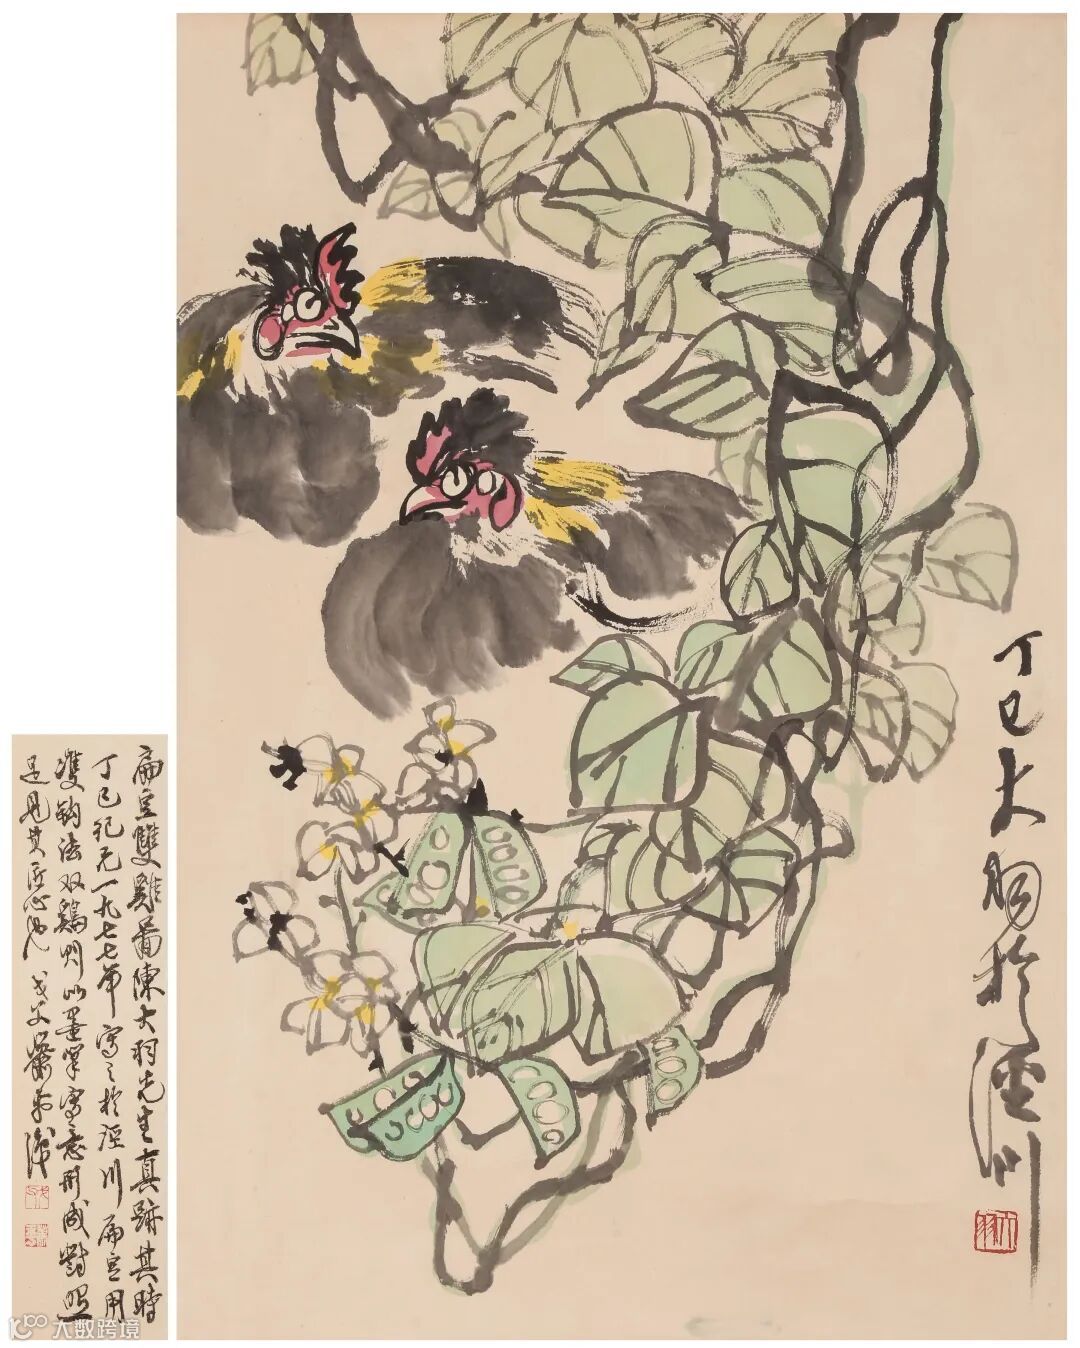 丁巳大羽於涇川
大羽
扁豆雙雞圖陳大羽先生真跡其時
丁巳紀元一九七七年寫之於涇川扁豆用
雙鈎法双鷄則以墨筆寫意形成對照
足見其匠心也
100 大数跨境